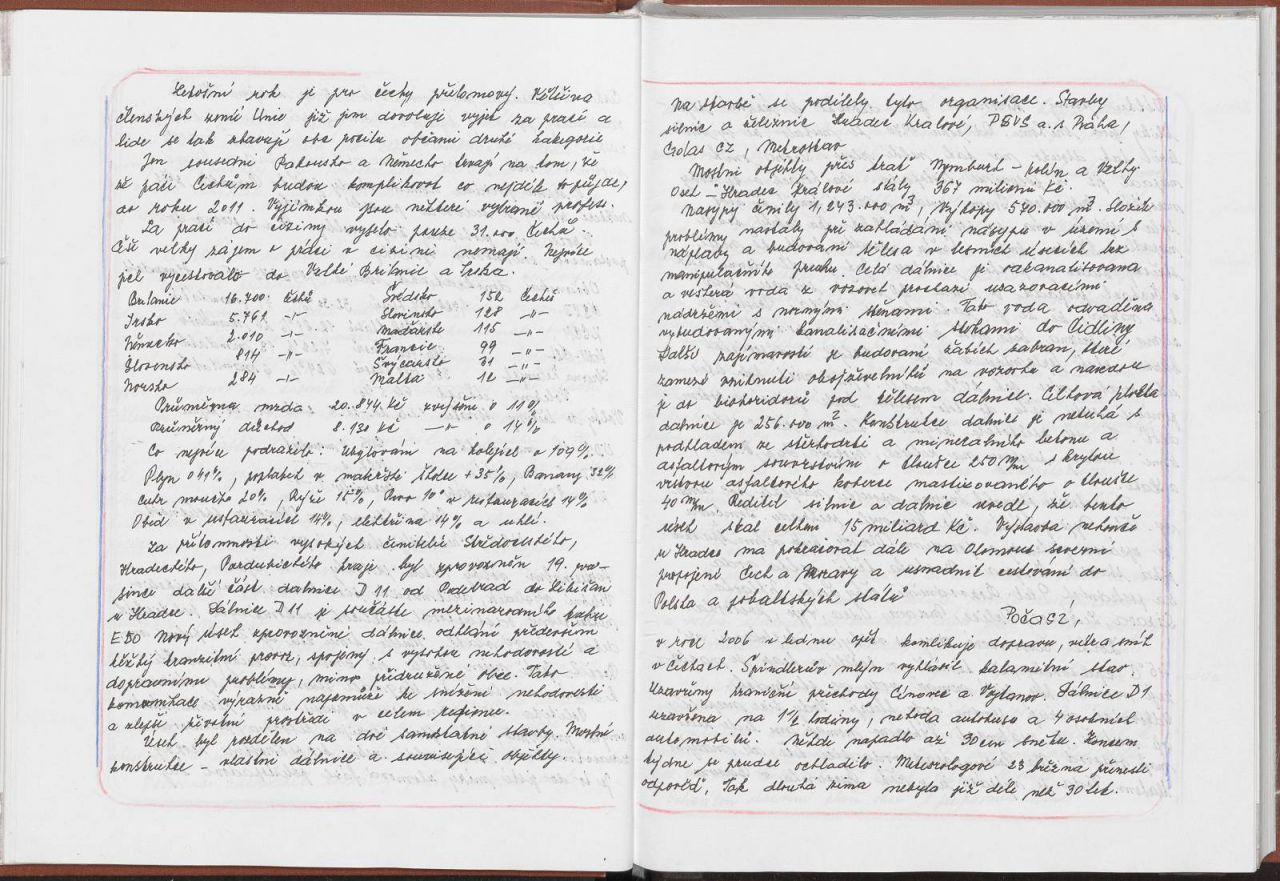 Letošní rok je pro čechy přelomový. Většina
členských zemí Unie již jim dovoluje vyjet za prací a
lidé se tak zbavují pocitu občanů druhé kategorie
Jen sousední Rakousko a Německo trvají na tom, že
se práci Čechům budou komplikovat co nejdéle to půjde,
do roku 2011. Vyjímkou jsou některé vybrané profese.
Za prací do ciziny vyjelo pouze 31.000 Čechů.
Češi velký zájem o práci v cizině nemají. Nejvíce
jich vycestovalo do Velké Británie a Irska.
Britanie 16.700 Čechů Švédsko 152 Čechů
Irsko 5.761 -"- Slovinsko 128 -"-
Německo 2.010 -"- Maďarsko 115 -"-
Slovensko 814 -"- Francie 99
Norsko 284 -"- Švýcarsko 31 -"-
Malta 12 -"-
Průměrná mzda 20.844 Kč zvýšena o 11%
Průměrný důchod 8.130 Kč -"- o 14%
Co nejvíce podražilo: ubytování na kolejích o 109%.
Plyn o 41%, poplatek v mateřské školce +35%, Banany 32%
cukr moučka 20%, Rýže 15%, Pivo 10° v restauracích 14%
Oběd v restauracích 14%, elektřina 14% a uhlí.
Za přítomnosti vysokých činitelů Středočeského,
Hradeckého, Pardubického kraje byl zprovozněn 19. pro-
since další část dalnice D 11 od Poděbrad do Libišan
u Hradce. Dálnice D 11 je součástí mezinárodního tahu
E 50 Nový úsek zprovozněné dálnice odlehčí především
těžký tranzitní provoz, spojený s vysokou nehodovostí a
dopravními problémy, mimo přidružené obce. Tato
komunikace výrazně napomůže ke snížení nehodovosti
a zlepší životní prostředí v celém regionu.
Úsek byl rozdělen na dvě samostatné stavby. Mostní
konstrukce – vlastní dálnice a související objekty.
Na stavbě se podílely tyto organisace. Stavby
silnic a železnic Hradec Králové, PSVS a.s. Praha,
Colas CZ, Metrostav
Mostní objekty přes trať Nymburk – Kolín a Velký
Osek – Hradec Králové stály 367 milionů Kč.
Nasypy činily 1,243.000 m³, Výkopy 570.000 m³. Složité
problémy nastaly při zakládání násypu v území s
náplavy a budování tělesa v lesních úsecích bez
manipulačního pruhu. Celá dálnice je odkanalisována
a veškerá voda z vozovek prochází usazovacími
nádržemi s nornými stěnami. Tato voda odváděna
vybudovanými kanalizačními stokami do Cidliny
Další zajímavostí je budování žabích zábran, které
zamezí vniknutí obojživelníků na vozovku a navedou
je do biokoridorů pod tělesem dálnice. Celková plocha
dálnice je 256.000 m². Konstrukce dálnice je netuhá s
podkladem ze štěrkodrti a minerálního betonu a
asfaltovým souvrstvím o tloušťce 250 mm s krytou
vrstvou asfaltového koberce mastixovaného o tloušťce
40 mm Ředitel silnic a dálnic uvedl, že tento
úsek stál celkem 15 miliard Kč. Výstavba
u Hradce má pokračovat dále na Olomouc severní
propojení Čech a Moravy a usnadnit cestování do
Polska a pobaltských států
Počasí,
v roce 2006 v lednu opět komlikuje dopravu, vůle a sníh
v Čechách. Špindlerův mlýn vyhlásil kalamitní stav.
Uzavřeny hraniční přechody Cínovec a Vojtanov. Dálnice D1
uzavřena na 1½ hodiny, nehoda autobusu a 4 osobních
automobilů. Někde napadlo až 30 cm sněhu. Koncem
týdne se prudce ochladilo. Meteorologové 23 března přinesli
odpověď, Tak dlouhá zima nebyla již déle než 30 let.